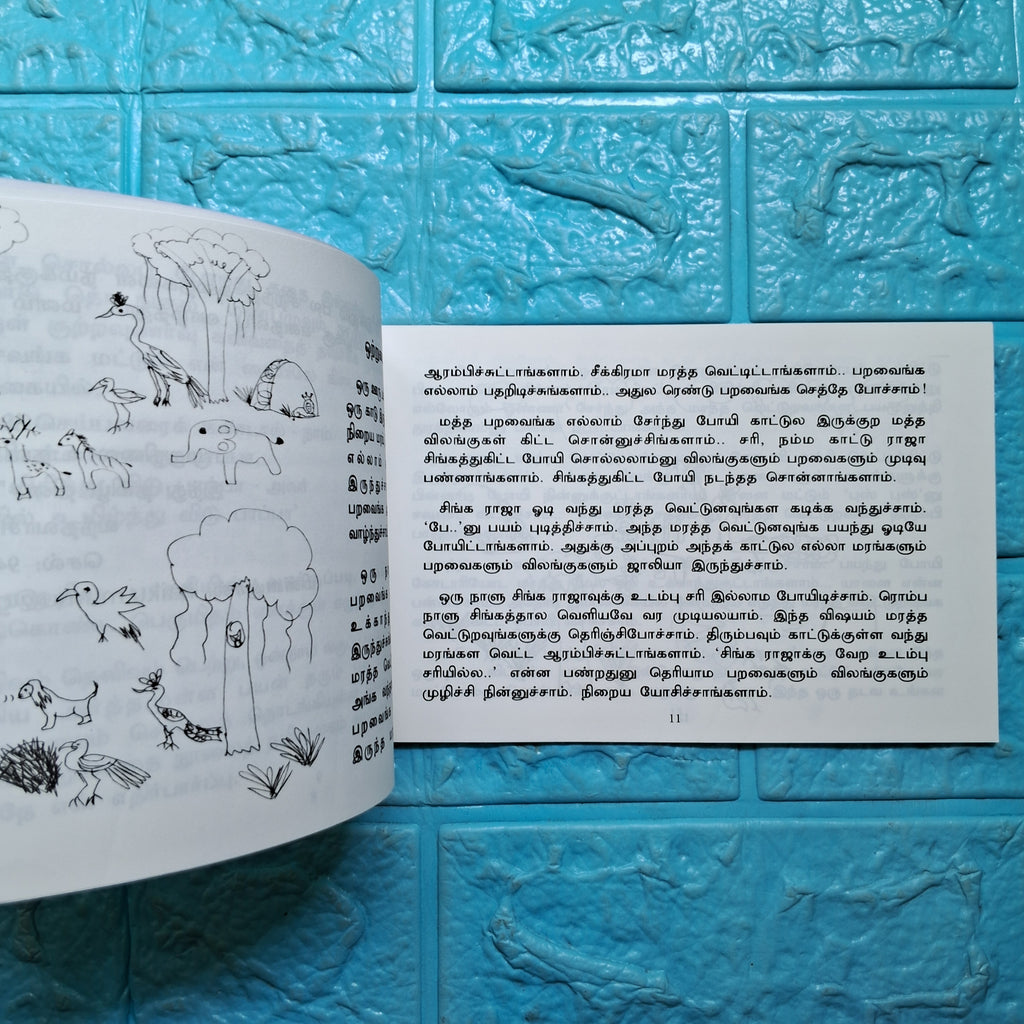 ஒரு ஊரு
ஒரு காடு
நிறைய
எல்லாம்
பறவைங்க
ஒரு
பறவைங்க
மரத்த
அங்க
இருந்த
ஆரம்பிச்சுட்டாங்களாம். சீக்கிரமா மரத்த வெட்டிட்டாங்களாம்.. பறவைங்க
எல்லாம் பதறிடிச்சுங்களாம்.. அதுல ரெண்டு பறவைங்க செத்தே போச்சாம்!
மத்த பறவைங்க எல்லாம் சேர்ந்து போயி காட்டுல இருக்குற மத்த
விலங்குகள் கிட்ட சொன்னுச்சிங்களாம்.. சரி, நம்ம காட்டு ராஜா
சிங்கத்துகிட்ட போயி சொல்லலாம்னு விலங்குகளும் பறவைகளும் முடிவு
பண்ணாங்களாம். சிங்கத்துகிட்ட போயி நடந்தத சொன்னாங்களாம்.
சிங்க ராஜா ஓடி வந்து மரத்த வெட்டுனவுங்கள கடிக்க வந்துச்சாம்.
‘பே..’னு பயம் புடித்திச்சாம். அந்த மரத்த வெட்டுனவுங்க பயந்து ஓடியே
போயிட்டாங்களாம். அதுக்கு அப்புறம் அந்தக் காட்டுல எல்லா மரங்களும்
பறவைகளும் விலங்குகளும் ஜாலியா இருந்துச்சாம்.
ஒரு நாளு சிங்க ராஜாவுக்கு உடம்பு சரி இல்லாம போயிடிச்சாம். ரொம்ப
நாளு சிங்கத்தால வெளியவே வர முடியலயாம். இந்த விஷயம் மரத்த
வெட்டுறவுங்களுக்கு தெரிஞ்சிபோச்சாம். திரும்பவும் காட்டுக்குள்ள வந்து
மரங்கள வெட்ட ஆரம்பிச்சுட்டாங்களாம். ‘சிங்க ராஜாக்கு வேற உடம்பு
சரியில்ல..’ என்ன பண்றதுனு தெரியாம பறவைகளும் விலங்குகளும்
முழிச்சி நின்னுச்சாம். நிறைய யோசிச்சாங்களாம்.
11